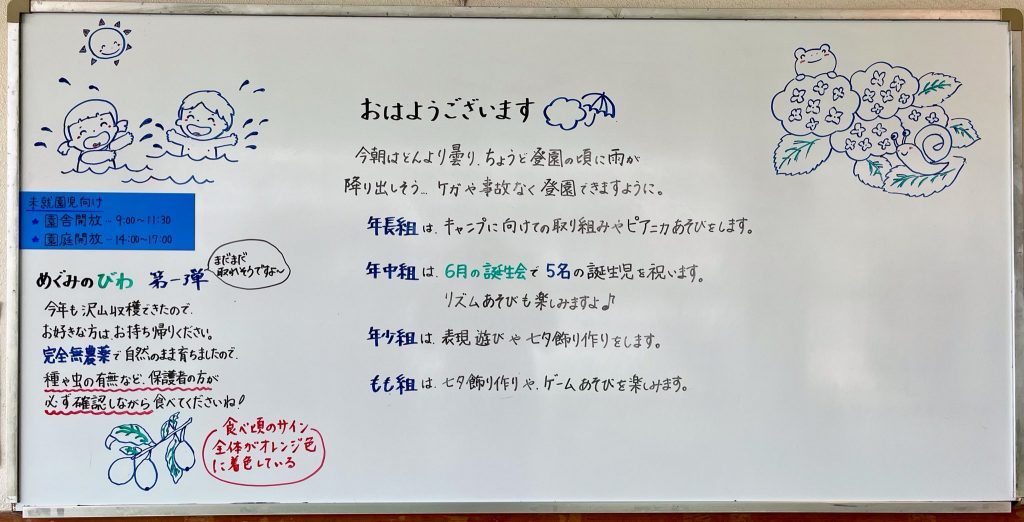 おはようございます
今朝はどんより曇り、ちょうど登園の頃に雨が
降り出しそう… ケガや事故なく登園できますように。
年長組は、キャンプに向けての取り組みやピアニカあそびをします。
年中組は、6月の誕生会で5名の誕生児を祝います。
リズムあそびも楽しみますよ♪
年少組は、表現遊びや七夕飾り作りをします。
もも組は、七夕飾り作りや、ゲームあそびを楽しみます。
未就園児向け
★園舎開放…9:00〜11:30
★園庭開放…14:00〜17:00
めぐみのびわ 第一弾
まだまだ
取れそうですよ〜
今年も沢山収穫できたので、
お好きな方はお持ち帰りください。
完全無農薬で自然のまま育ちましたので、
種や虫の有無など、保護者の方が
必ず確認しながら食べてくださいね!
食べ頃のサイン
全体がオレンジ色
に着色している